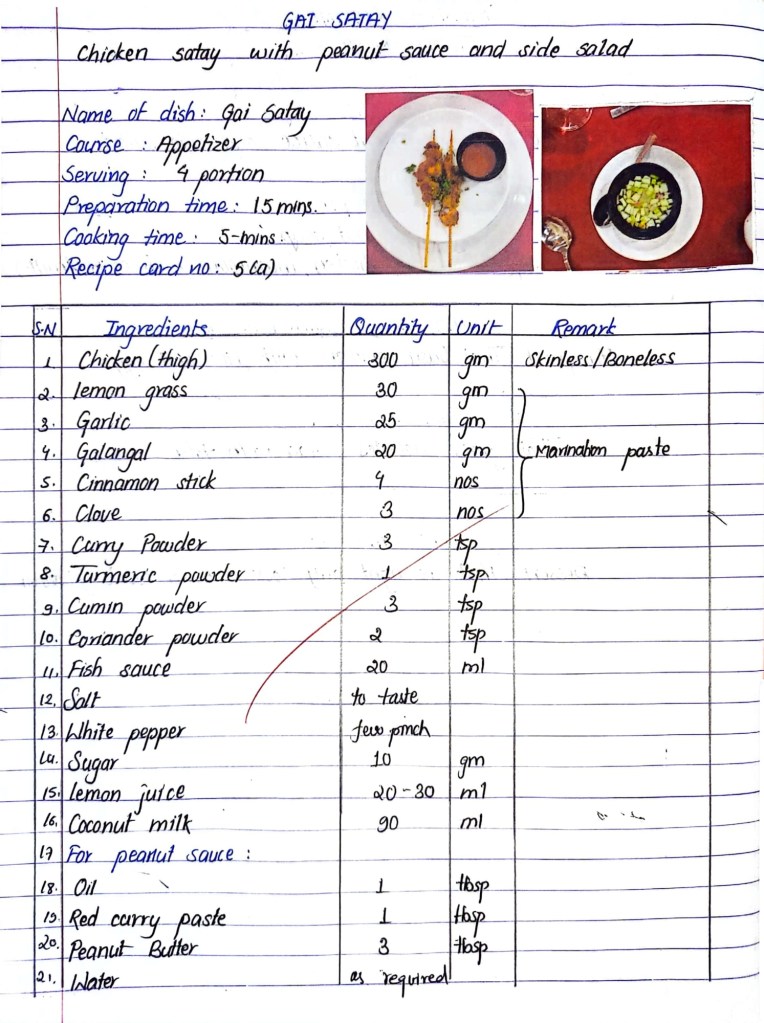 GAI SATAY
Chicken satay with peanut sauce and side salad
Name of dish: Gai Satay
Course : Appetizer
Serving : 4 portion
Preparation time: 15 mins.
Cooking time: 5-mins.
Recipe card no: 5(a)
S.N Ingredients Quantity Unit Remark
1. Chicken (thigh) 300 gm Skinless/Boneless
2. lemon grass 30 gm
3. Garlic 25 gm
4. Galangal 20 gm Marination paste
5. Cinnamon stick 4 nos
6. Clove 3 nos
7. Curry Powder 3 tsp
8. Turmeric powder 1 tsp
9. Cumin powder 3 tsp
10. Coriander powder 2 tsp
11. Fish sauce 20 ml
12. Salt to taste
13. White pepper few pinch
14. Sugar 10 gm
15. lemon juice 20-30 ml
16. Coconut milk 90 ml
17 For peanut sauce :
18. Oil 1 tbsp
19. Red curry paste 1 tbsp
20. Peanut Butter 3 tbsp
21. Water as required